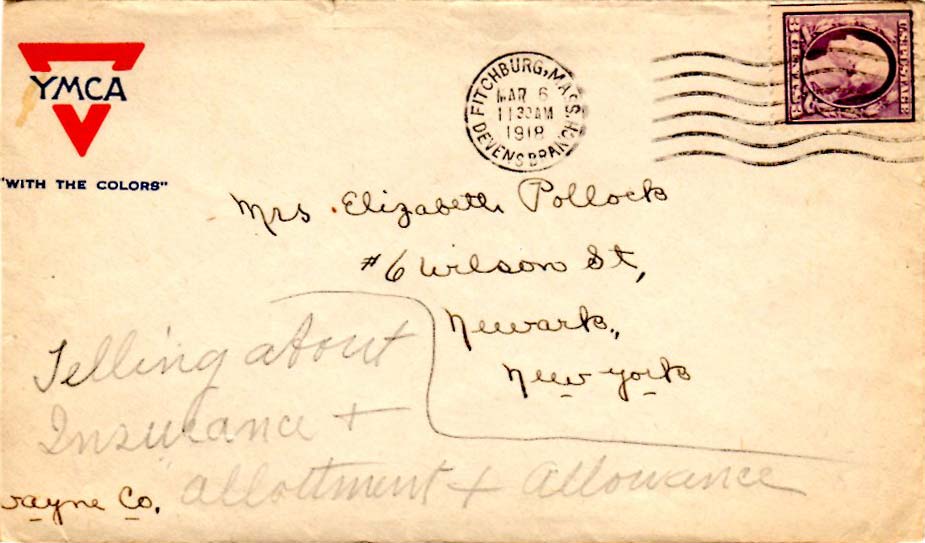 YMCA
"WITH THE COLORS"
FITCHBURG, MASS.
MAR 6
11 30 AM
1918
DEVENS BRANCH
U.S. POSTAGE
Mrs. Elizabeth Pollock
#6 Wilson St,
Newark,
New York
Wayne Co.
Telling about
Insurance +
allottment + Allowance